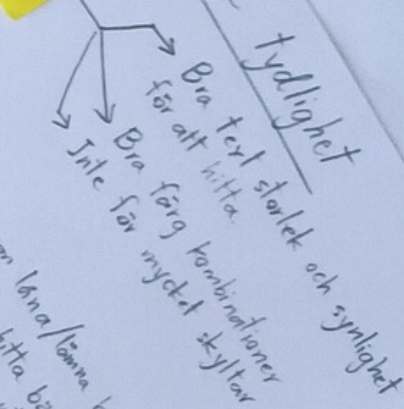 tydlighet
Bra text storlek och synlighet
för att hitta
Bra färg kombinationer
Inte för mycket skyltar
låna/lämna
hitta